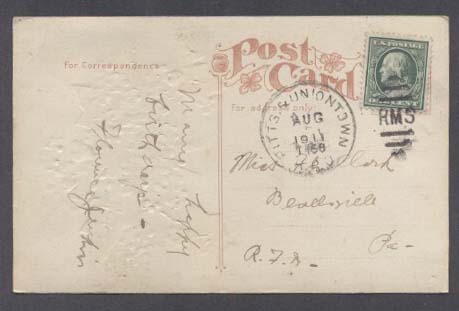 Post Card
For Correspondence
For address only
U.S. POSTAGE
ONE CENT
PITTS. & UNIONTOWN
AUG
1911
RMS
Many happy
birthdays -
Miss Clark
Beallsville
R.F.D. Pa-